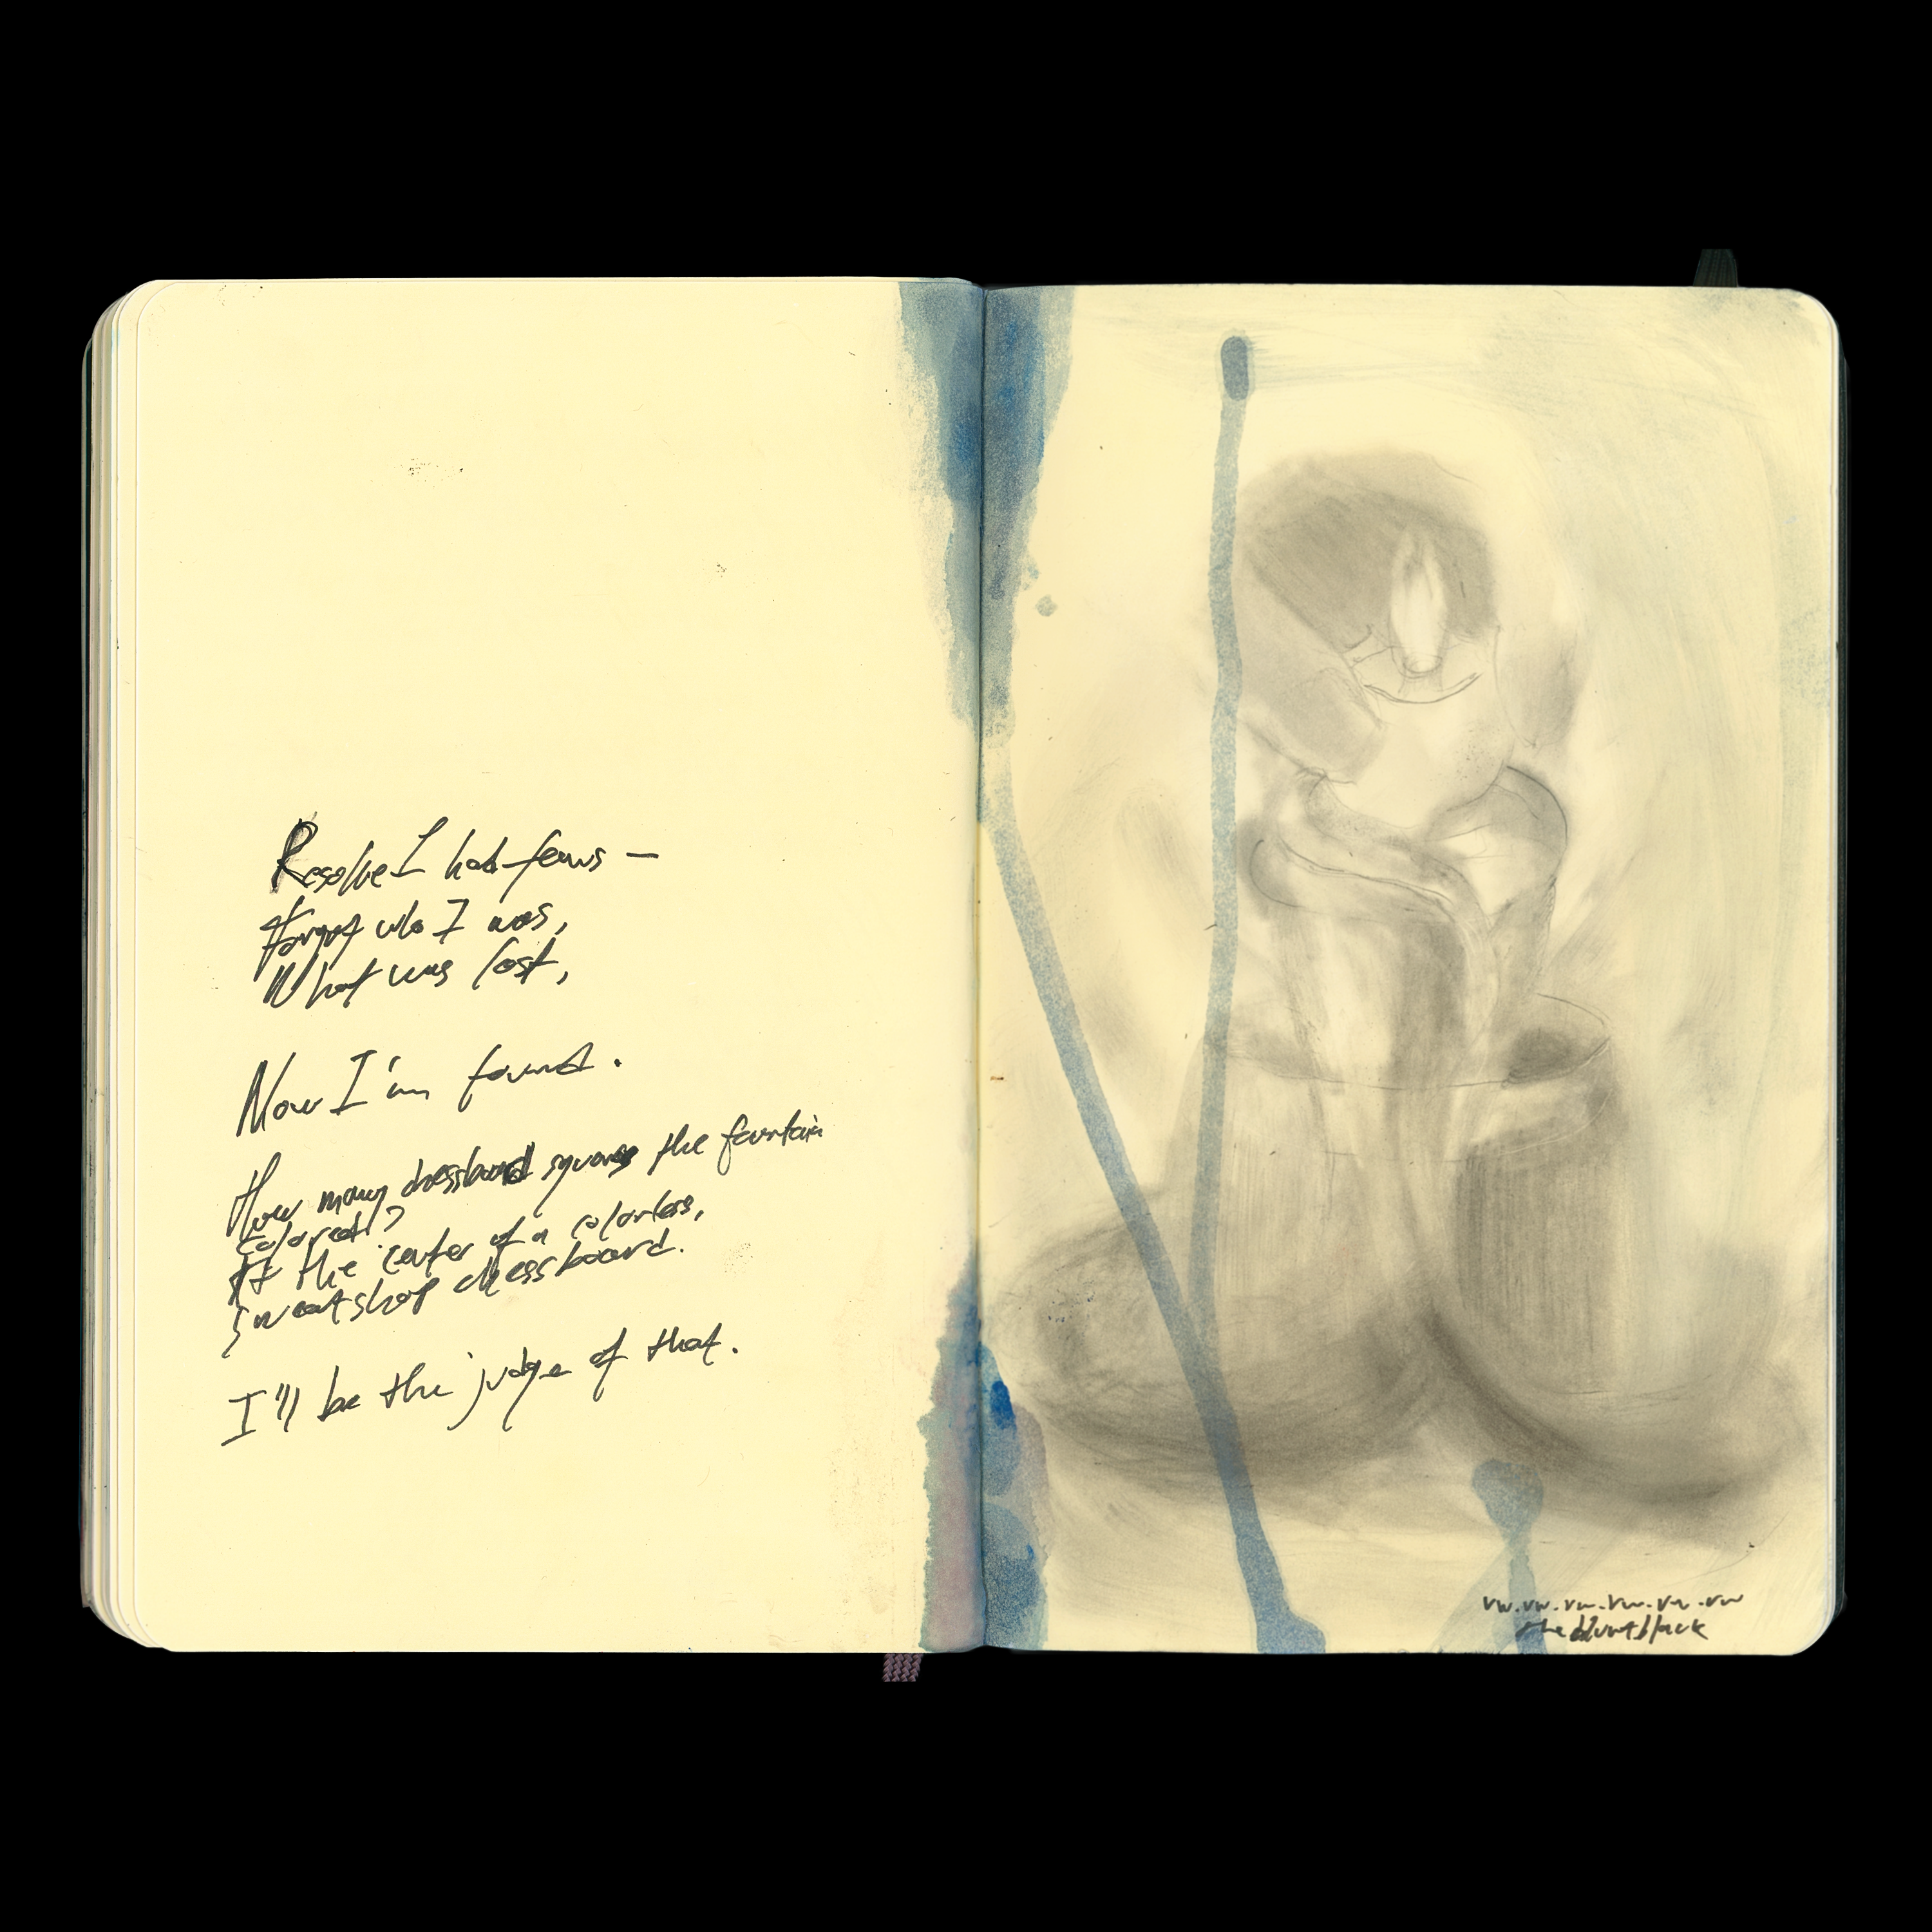 Resolve I had fears —
forgot who I was,
What was lost,
Now I'm found.
How many chessboard squares the fountain
colored?
At the center of a colorless,
sweatshop chessboard.
I'll be the judge of that.
vw.vw.vw.vw.vw.vw
the bluntblack